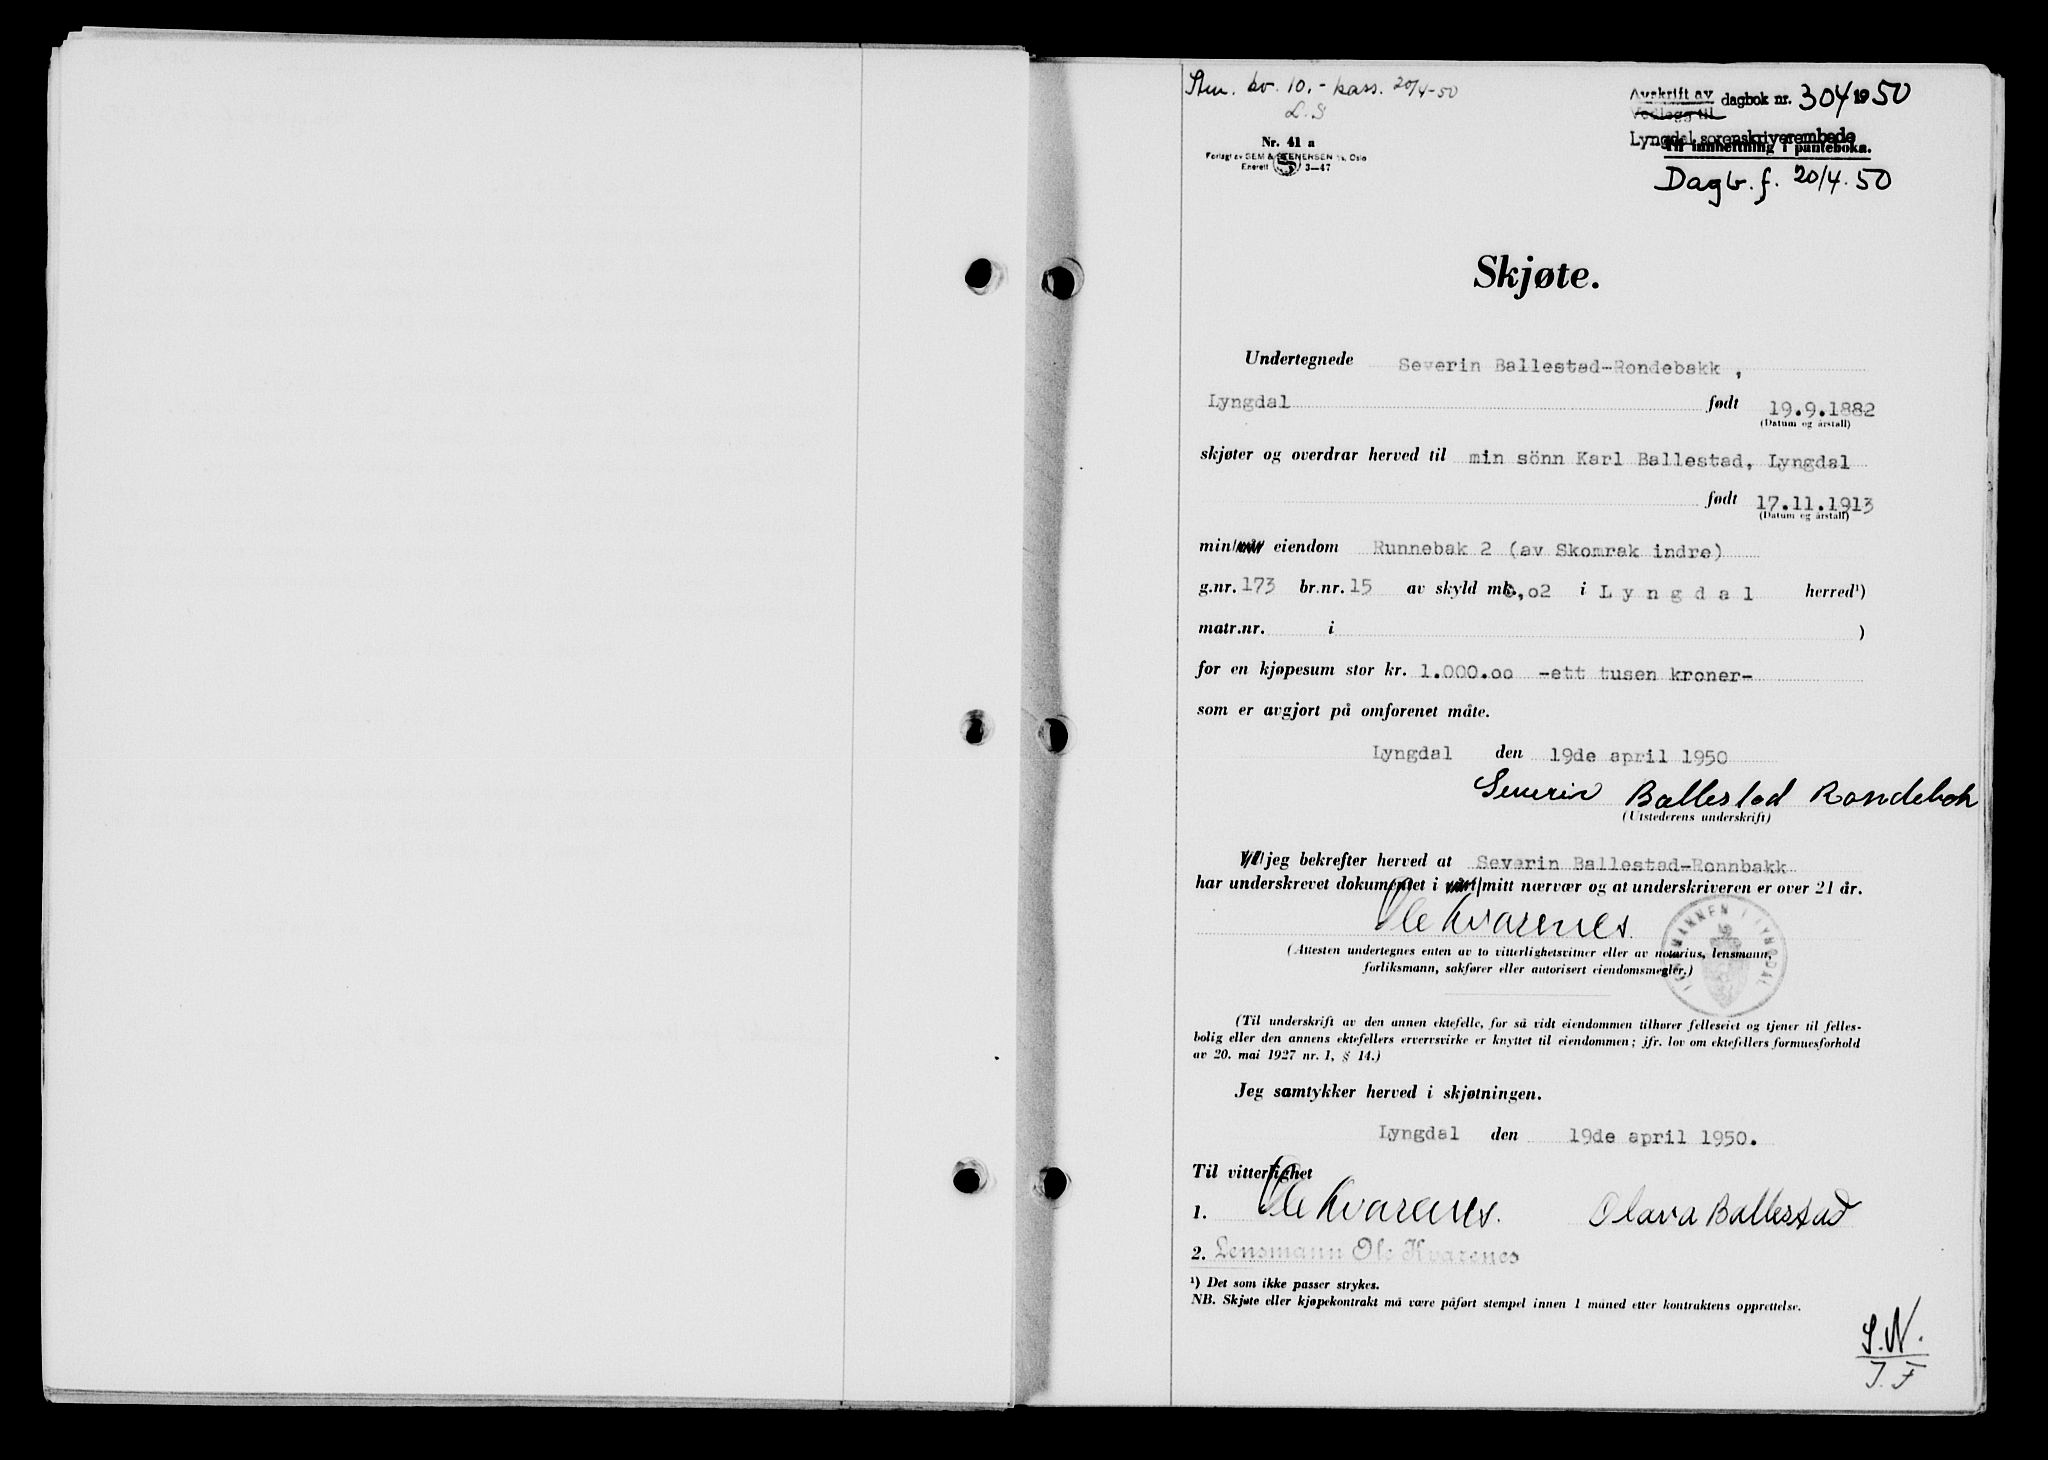 Stem. kr. 10.- kass. 20/4-50
L.S
Nr. 41 a
Forlagt av SEM & STENERSEN A/S, Oslo
Enerett 3—47
Avskrift av
Vedlegg til
dagbok nr. 304 1950
Lyngdal sorenskriverembede
Til innheftning i panteboka.
Dagb. f. 20/4. 50
Skjøte.
Undertegnede Severin Ballestad-Rondebakk,
Lyngdal født 19.9.1882
(Datum og årstall)
skjøter og overdrar herved til min sönn Karl Ballestad, Lyngdal
født 17.11.1913
(Datum og årstall)
min/vår eiendom Runnebak 2 (av Skomrak indre)
g.nr. 173 br.nr. 15 av skyld mk. 0,02 i Lyngdal herred¹)
matr.nr. i )
for en kjøpesum stor kr. 1.000.oo -ett tusen kroner-
som er avgjort på omforenet måte.
Lyngdal den 19de april 1950
Severin Ballestad Rondebak
(Utstederens underskrift)
Vi/jeg bekrefter herved at Severin Ballestad-Ronnbakk
har underskrevet dokumentet i vårt/mitt nærvær og at underskriveren er over 21 år.
Ole Kvarenes.
LENSMANNEN I LYNGDAL
(Attesten undertegnes enten av to vitterlighetsvitner eller av notarius, lensmann,
forliksmann, sakfører eller autorisert eiendomsmegler.)
(Til underskrift av den annen ektefelle, for så vidt eiendommen tilhører felleseiet og tjener til felles-
bolig eller den annens ektefellers ervervsvirke er knyttet til eiendommen; jfr. lov om ektefellers formuesforhold
av 20. mai 1927 nr. 1, § 14.)
Jeg samtykker herved i skjøtningen.
Lyngdal den 19de april 1950.
Til vitterlighet
1. Ole Kvarenes. Olava Ballestad
2. Lensmann Ole Kvarenes
¹) Det som ikke passer strykes.
NB. Skjøte eller kjøpekontrakt må være påført stempel innen 1 måned etter kontraktens opprettelse.
S.N.
J.F